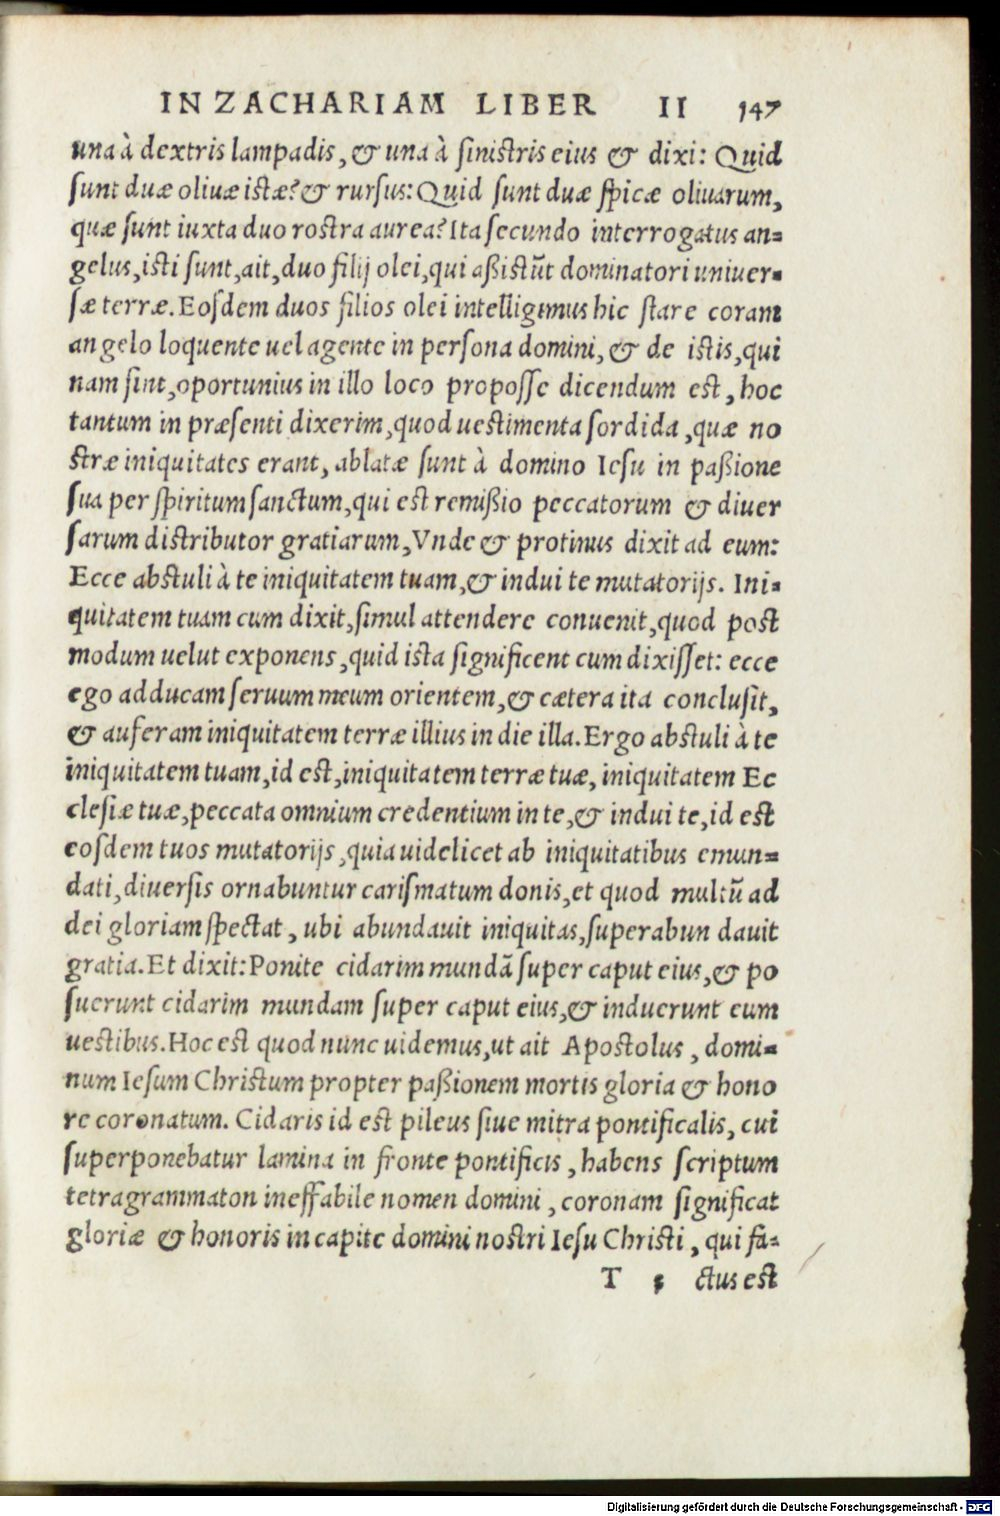 IN ZACHARIAM LIBER II 147
una à dextris lampadis, & una à sinistris eius & dixi: Quid
sunt duæ oliuæ istæ? & rursus: Quid sunt duæ spicæ oliuarum,
quæ sunt iuxta duo rostra aurea? Ita secundo interrogatus an-
gelus, isti sunt, ait, duo filij olei, qui aßistũt dominatori uniuer-
sæ terræ. Eosdem duos filios olei intelligimus hic stare coram
angelo loquente uel agente in persona domini, & de istis, qui
nam sint, oportunius in illo loco proposse dicendum est, hoc
tantum in præsenti dixerim, quod uestimenta sordida, quæ no
stræ iniquitates erant, ablatæ sunt à domino Iesu in paßione
sua per spiritum sanctum, qui est remißio peccatorum & diuer
sarum distributor gratiarum, Vnde & protinus dixit ad eum:
Ecce abstuli à te iniquitatem tuam, & indui te mutatorijs. Ini-
quitatem tuam cum dixit, simul attendere conuenit, quod post
modum uelut exponens, quid ista significent cum dixisset: ecce
ego adducam seruum meum orientem, & cætera ita conclusit,
& auferam iniquitatem terræ illius in die illa. Ergo abstuli à te
iniquitatem tuam, id est, iniquitatem terræ tuæ, iniquitatem Ec
clesiæ tuæ, peccata omnium credentium in te, & indui te, id est
eosdem tuos mutatorijs, quia uidelicet ab iniquitatibus emun-
dati, diuersis ornabuntur carismatum donis, et quod multũ ad
dei gloriam spectat, ubi abundauit iniquitas, superabun dauit
gratia. Et dixit: Ponite cidarim mundã super caput eius, & po
suerunt cidarim mundam super caput eius, & induerunt eum
uestibus. Hoc est quod nunc uidemus, ut ait Apostolus, domi-
num Iesum Christum propter paßionem mortis gloria & hono
re coronatum. Cidaris id est pileus siue mitra pontificalis, cui
superponebatur lamina in fronte pontificis, habens scriptum
tetragrammaton ineffabile nomen domini, coronam significat
gloriæ & honoris in capite domini nostri Iesu Christi, qui fa-
T 5 ctus est
Digitalisierung gefördert durch die Deutsche Forschungsgemeinschaft - DFG